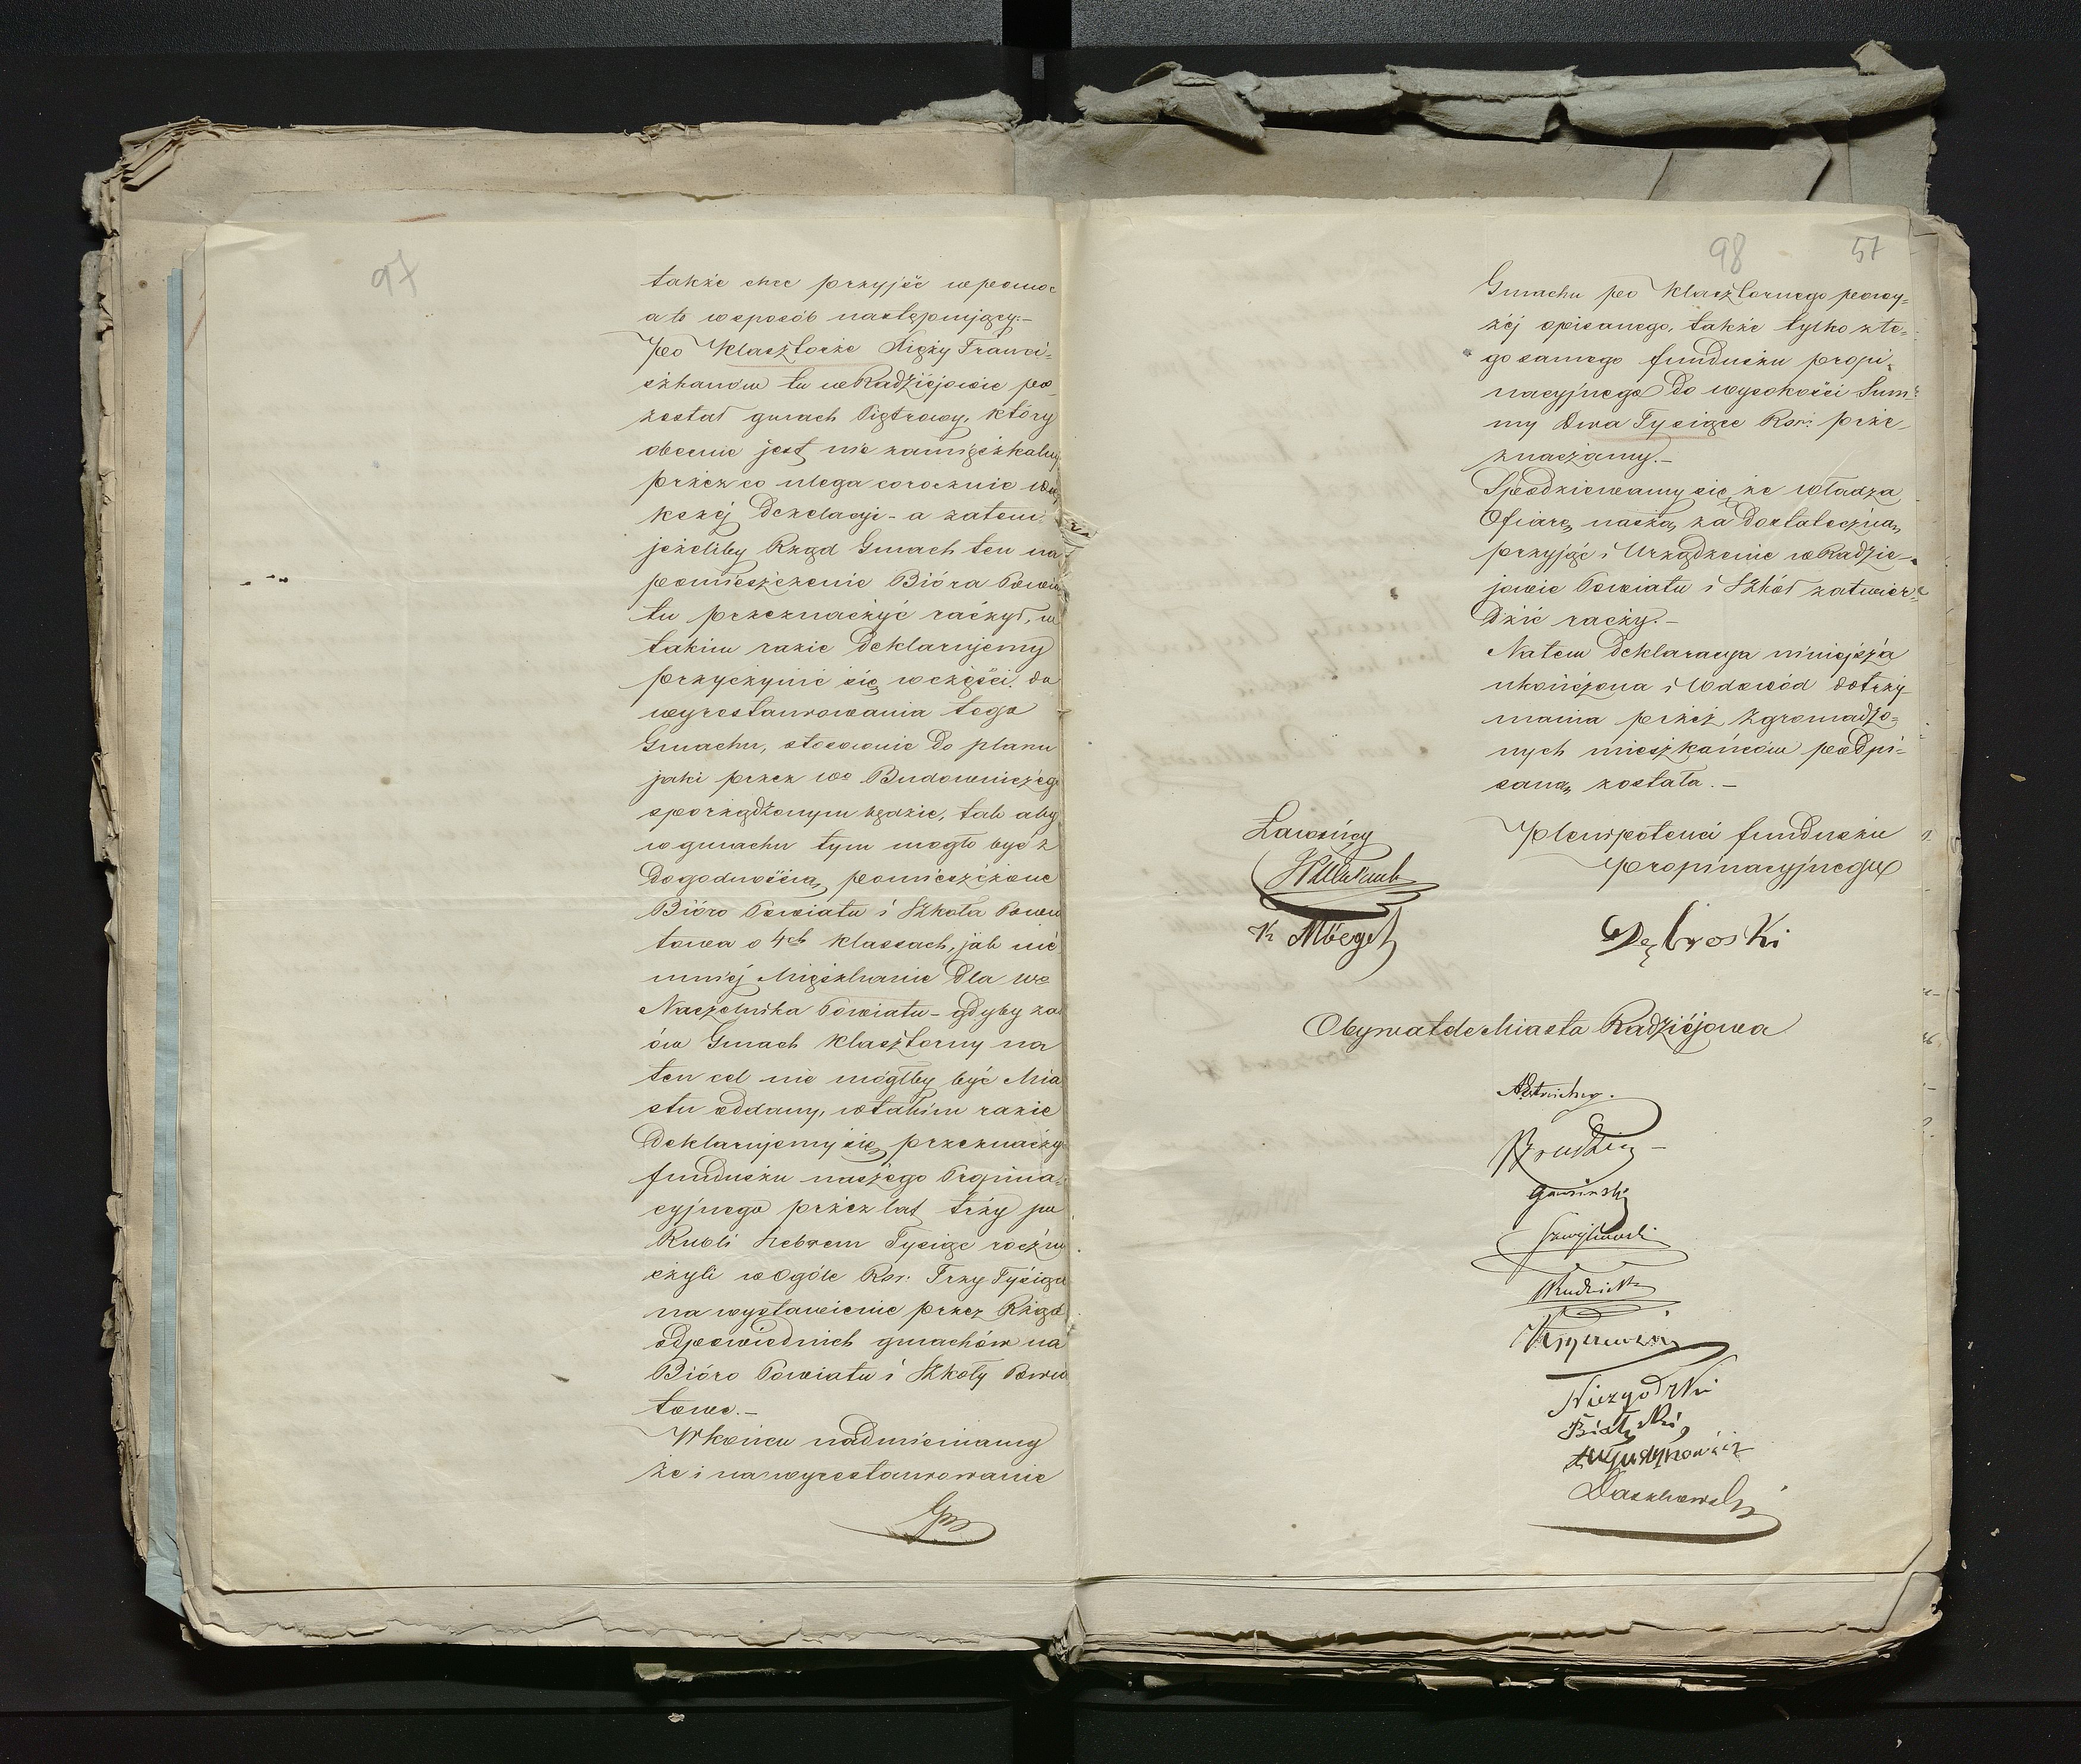 97
także chce przyjść w pomoc
a to w sposób następujący:-
Po Klasztorze Xięży Franci=
szkanów tu w Radziejowie po-
został gmach Piętrowy, który
obecnie jest nie zamięszkalny
przez co ulega corocznie więk
kszéj dezelacyi - a zatem
jeżeliby Rząd Gmach ten na
pomieszczenie Bióra Powia
tu przeznaczyć raczył, w
takim razie deklarujemy
przyczynić się w części do
wyrestaurowania tego
Gmachu, stosownie do planu
jaki przez Wo Budowniczego
sporządzonym będzie, tak aby
w gmachu tym mogło być z
dogodnością pomieszczone
Bióro Powiatu i Szkoła Powia
towa o 4ch klassach, jak nie
mniéj Mięszkanie dla Wo
Naczelnika Powiatu - gdyby zaś
ów Gmach klasztorny na
ten cel nie mógłby być Mia
stu oddany, w takim razie
deklarujemy się przeznaczyć
funduszu naszego Propina=
cyjnego przez lat trzy po
Rubli srebrem Tysiąc roczni
czyli w ogóle Rsr: Trzy Tysiące
na wystawienie przez Rząd
odpowiednich gmachów na
Bióro Powiatu i Szkoły Powia
towe.-
W końcu nadmieniamy
że i na wyrestaurowanie
98 57
Gmachu po Klasztornego powy=
żéj opisanego, także tylko z te=
go samego funduszu propi=
nacyjnego do wysokości Sum=
my Dwa Tysiące Rsr: prze-
znaczamy.-
Spodziewamy się że władza
Ofiarę naszą za dostateczną
przyjąć i Urządzenie w Radzie=
jowie Powiatu i Szkół zatwier=
dzić raczy.-
Na tem deklaracya niniejsza
ukończona i w dowód dotrzy
mania przez zgromadzo=
nych mieszkańców podpi=
saną została.-
Ławnicy
Plenipotenci funduszu
propinacyjnego
Dębroski
Obywatele Miasta Radziejowa
Gawiński
Niezgodzki
Augustynowicz
Daszkowski